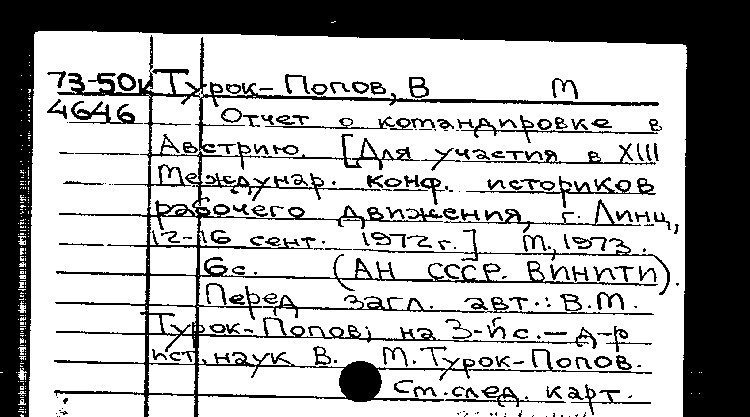 73-50к Турок-Попов, В М
4646 Отчет о командировке в
Австрию. [Для участия в XIII
Междунар. конф. историков
рабочего движения, г. Линц,
12-16 сент. 1972 г.] М., 1973.
6с. (АН СССР. ВИНИТИ).
Перед загл. авт.: В.М.
Турок-Попов; на 3-й с. — д-р
ист. наук В. М. Турок-Попов.
См. след. карт.